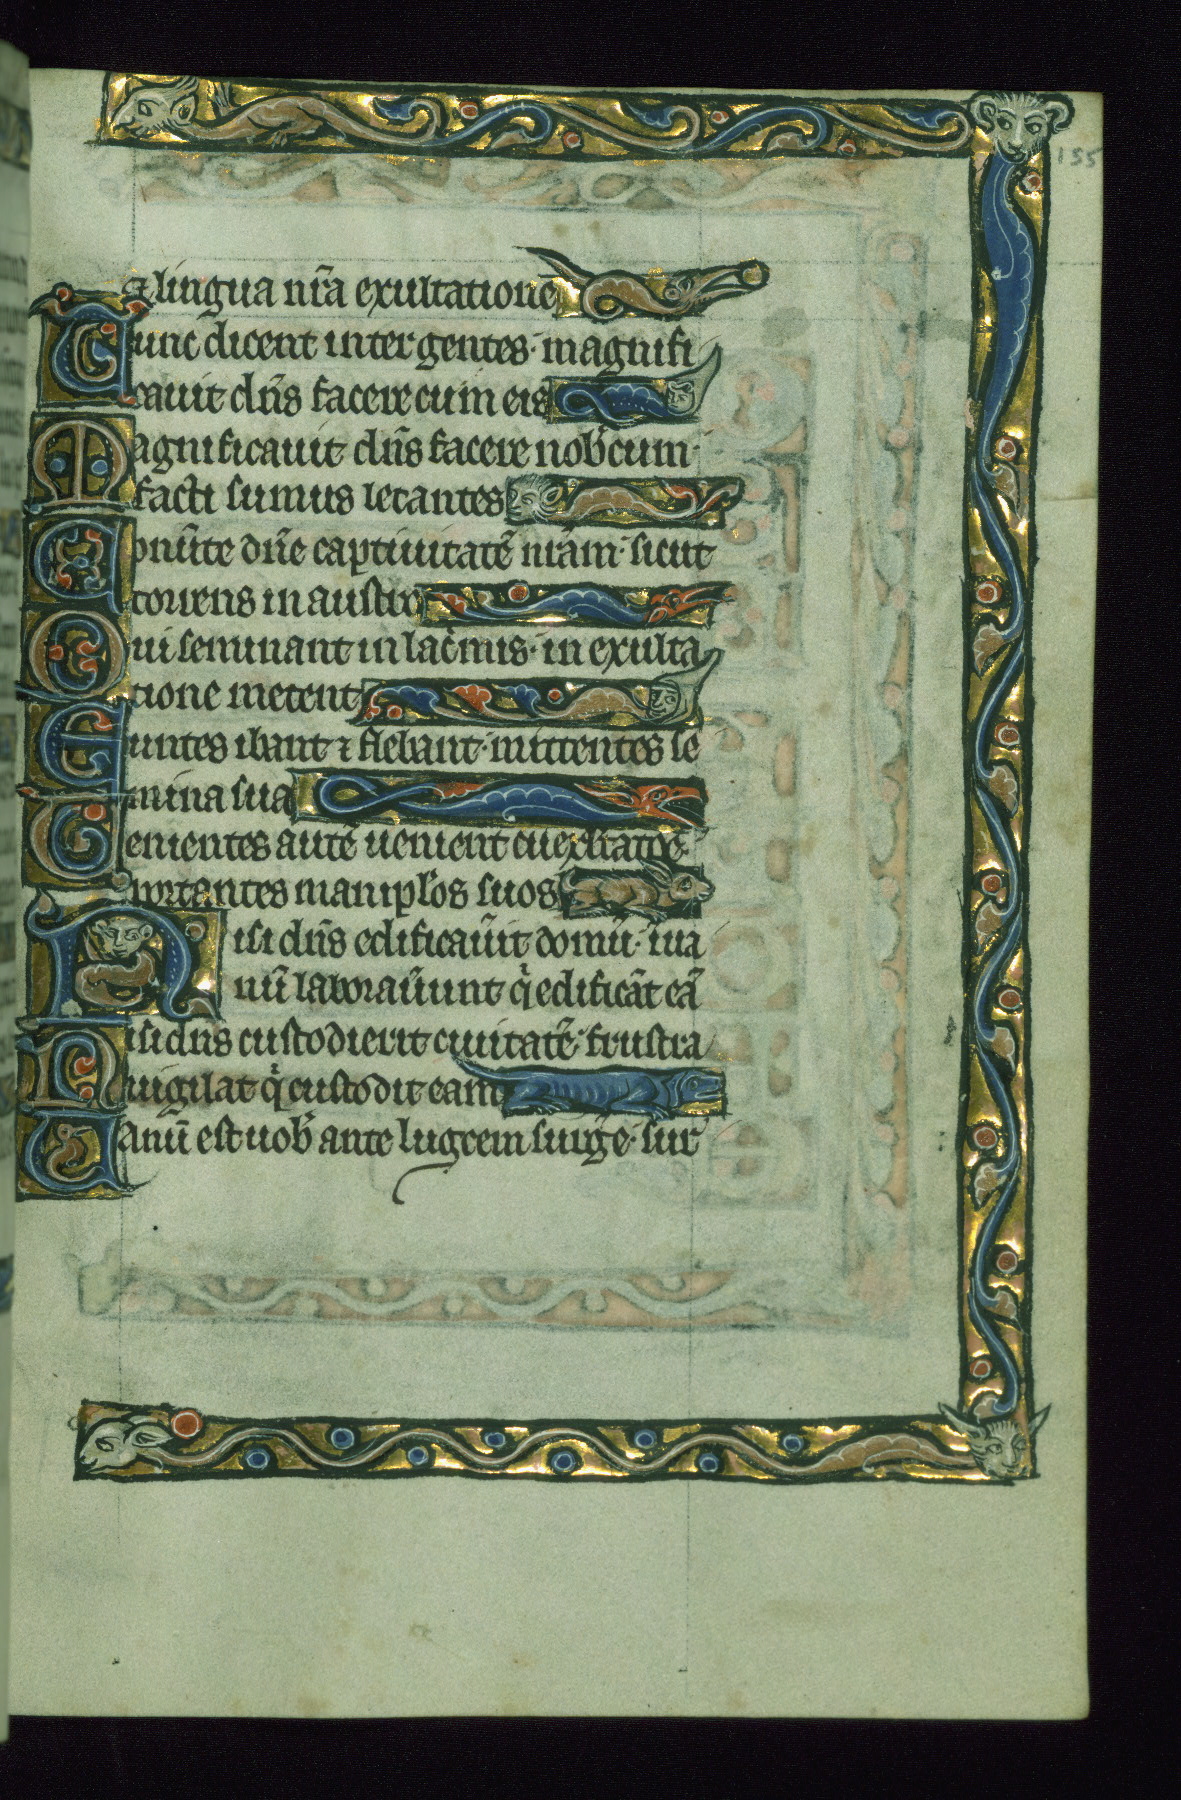 155
& lingua nr̄a exultatione
Tunc dicent inter gentes· magnifi
cavit dn̄s facere cum eis
Magnificavit dn̄s facere nob̄cum·
facti sumus letantes
Conūte dn̄e captiuitatē nr̄am· sicut
torrens in austro
Qui seminant in lac̄mis· in exulta
tione metent
Euntes ibant ⁊ flebant· mittentes se
mina sua
Uenientes autē uenient cū exltatōe·
portantes manipl̄os suos
Nisi dn̄s edificaūit domū· īua
nū laboraūunt q̄ edificāt eā
Nisi dn̄s custodierit ciuitatē· frustra
uigilat q̄ custodit eam
Uanū est uob̄ ante lucem surḡe· sur